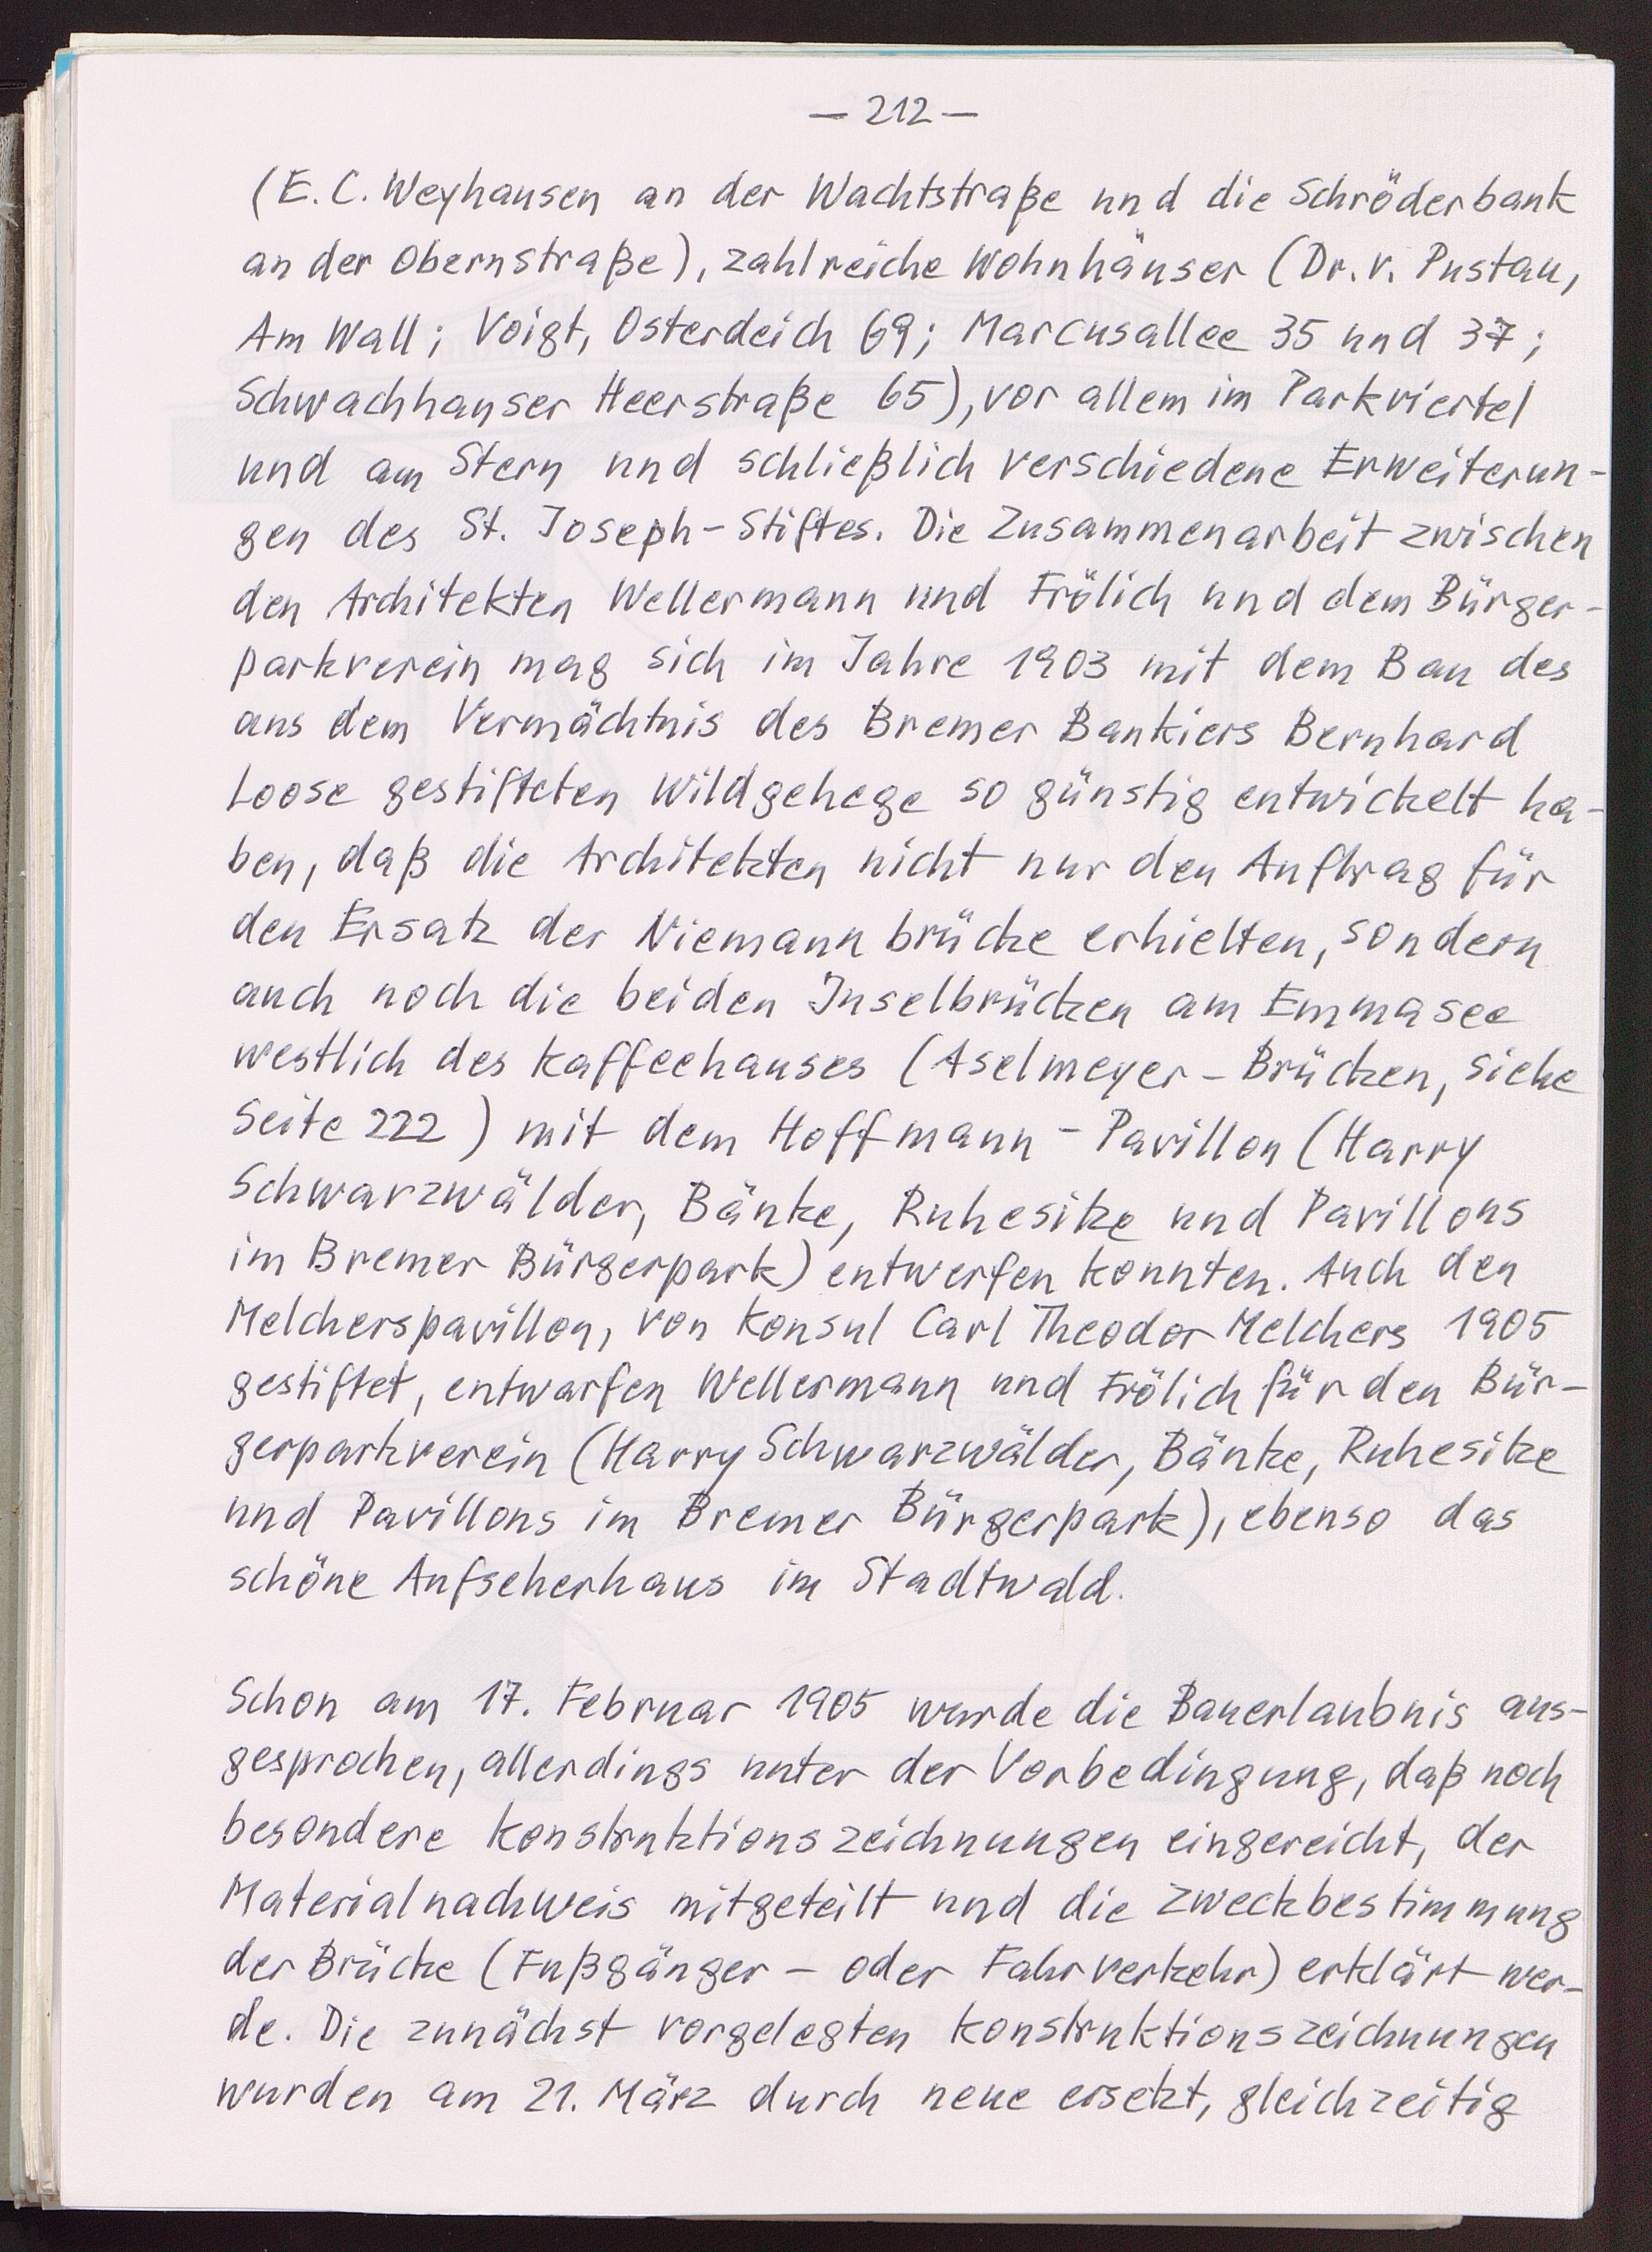 — 212 —
(E. C. Weyhausen an der Wachtstraße und die Schröderbank
an der Obernstraße), zahlreiche Wohnhäuser (Dr. v. Pustau,
Am Wall; Voigt, Osterdeich 69; Marcusallee 35 und 37;
Schwachhauser Heerstraße 65), vor allem im Parkviertel
und am Stern und schließlich verschiedene Erweiterun-
gen des St. Joseph-Stiftes. Die Zusammenarbeit zwischen
den Architekten Wellermann und Frölich und dem Bürger-
parkverein mag sich im Jahre 1903 mit dem Bau des
aus dem Vermächtnis des Bremer Bankiers Bernhard
Loose gestifteten Wildgehege so günstig entwickelt ha-
ben, daß die Architekten nicht nur den Auftrag für
den Ersatz der Niemannbrücke erhielten, sondern
auch noch die beiden Inselbrücken am Emmasee
westlich des Kaffeehauses (Aselmeyer-Brücken, siehe
Seite 222) mit dem Hoffmann-Pavillon (Harry
Schwarzwälder, Bänke, Ruhesitze und Pavillons
im Bremer Bürgerpark) entwerfen konnten. Auch den
Melcherspavillon, von Konsul Carl Theodor Melchers 1905
gestiftet, entwarfen Wellermann und Frölich für den Bür-
gerparkverein (Harry Schwarzwälder, Bänke, Ruhesitze
und Pavillons im Bremer Bürgerpark), ebenso das
schöne Aufseherhaus im Stadtwald.
Schon am 17. Februar 1905 wurde die Bauerlaubnis aus-
gesprochen, allerdings unter der Vorbedingung, daß noch
besondere Konstruktionszeichnungen eingereicht, der
Materialnachweis mitgeteilt und die Zweckbestimmung
der Brücke (Fußgänger- oder Fahrverkehr) erklärt wer-
de. Die zunächst vorgelegten Konstruktionszeichnungen
wurden am 21. März durch neue ersetzt, gleichzeitig